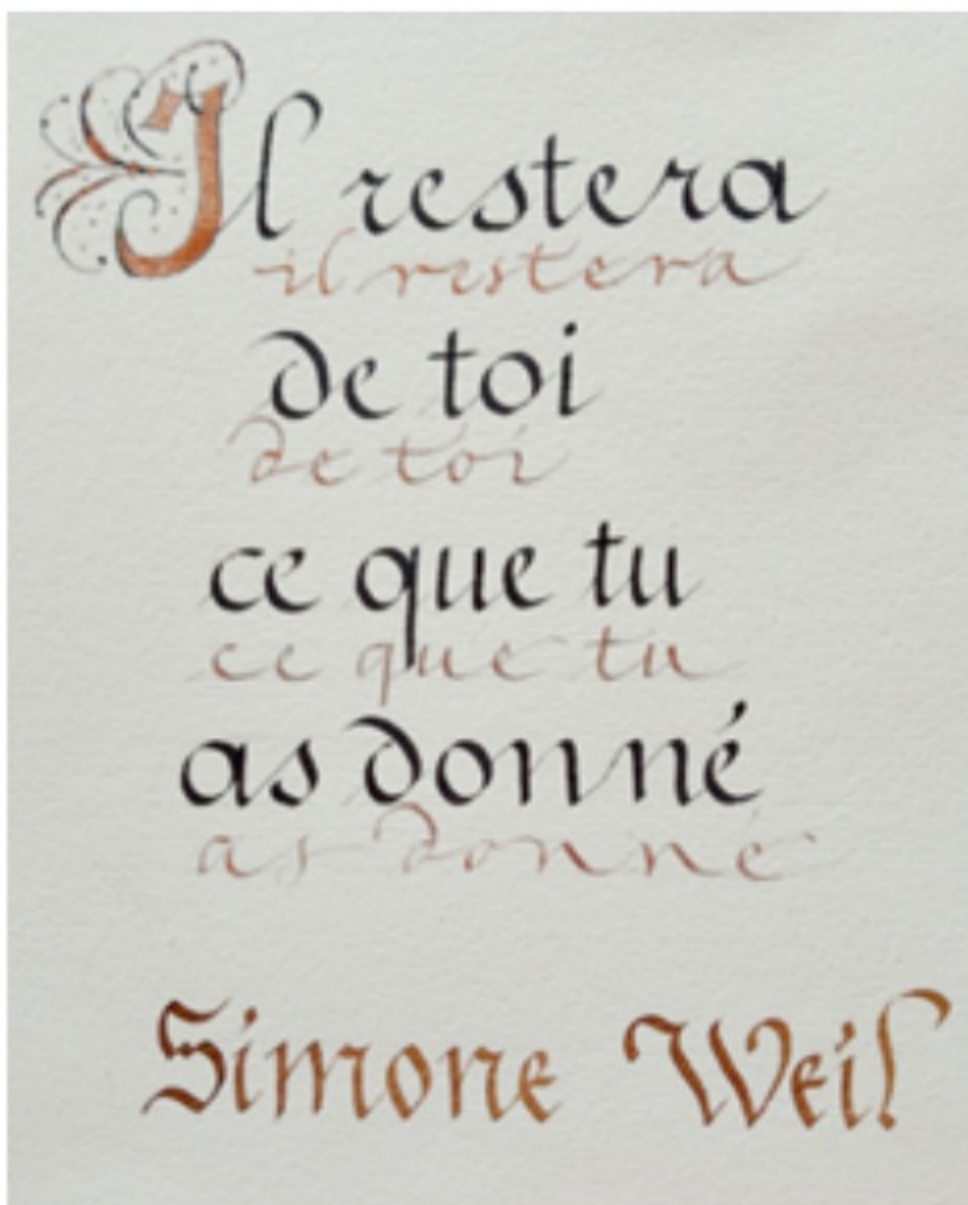 Il restera
il restera
de toi
de toi
ce que tu
ce que tu
as donné
as donné
Simone Weil